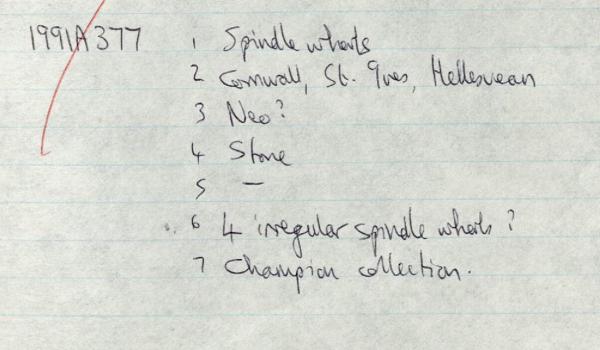 1991A377 1 Spindle whorls
2 Cornwall, St. Ives, Hellesvean
3 Neo?
4 Stone
5 —
6 4 irregular spindle whorls?
7 Champion collection.